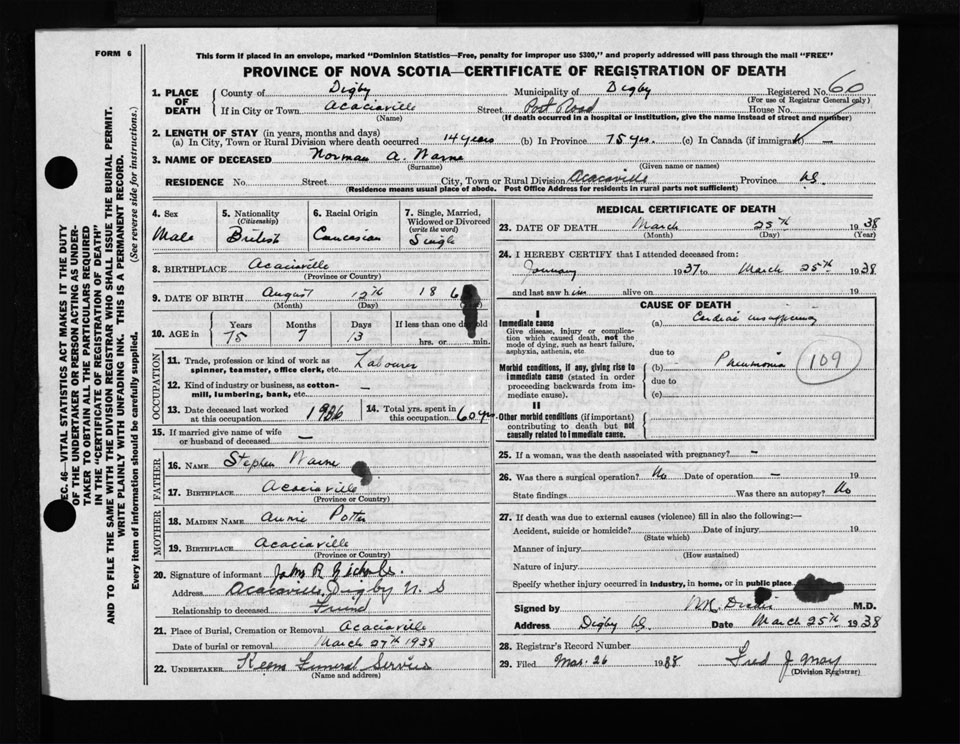 FORM 6
This form if placed in an envelope, marked "Dominion Statistics—Free, penalty for improper use $300," and properly addressed will pass through the mail "FREE"
PROVINCE OF NOVA SCOTIA—CERTIFICATE OF REGISTRATION OF DEATH
1. PLACE OF DEATH County of Digby Municipality of Digby Registered No. 60
(For use of Registrar General only)
If in City or Town Acaciaville Street Post Road House No.
(Name) (If death occurred in a hospital or institution, give the name instead of street and number)
2. LENGTH OF STAY (in years, months and days)
(a) In City, Town or Rural Division where death occurred 14 years (b) In Province 75 yrs. (c) In Canada (if immigrant) —
3. NAME OF DECEASED Norman A. Warne
(Surname) (Given name or names)
RESIDENCE No. Street City, Town or Rural Division Acaciaville Province N.S.
(Residence means usual place of abode. Post Office Address for residents in rural parts not sufficient)
4. Sex Male
5. Nationality (Citizenship) British
6. Racial Origin Caucasian
7. Single, Married, Widowed or Divorced (write the word) Single
8. BIRTHPLACE Acaciaville
(Province or Country)
9. DATE OF BIRTH August 12th 186
(Month) (Day) (Day)
10. AGE in Years 75 Months 7 Days 13 If less than one day old
hrs. or min.
OCCUPATION
11. Trade, profession or kind of work as spinner, teamster, office clerk, etc. Labourer
12. Kind of industry or business, as cotton-mill, lumbering, bank, etc. —
13. Date deceased last worked at this occupation 1936
14. Total yrs. spent in this occupation 60 yrs
15. If married give name of wife or husband of deceased —
FATHER
16. NAME Stephen Warne
17. BIRTHPLACE Acaciaville
(Province or Country)
MOTHER
18. MAIDEN NAME Annie Potter
19. BIRTHPLACE Acaciaville
(Province or Country)
20. Signature of informant John R Nichols
Address Acaciaville, Digby N.S
Relationship to deceased Friend
21. Place of Burial, Cremation or Removal Acaciaville
Date of burial or removal March 27th 1938
22. UNDERTAKER Keens Funeral Service
(Name and address)
MEDICAL CERTIFICATE OF DEATH
23. DATE OF DEATH March 25th 1938
(Month) (Day) (Year)
24. I HEREBY CERTIFY that I attended deceased from:
January 1937 to March 25th 1938
and last saw him alive on 19
CAUSE OF DEATH
I
Immediate cause
Give disease, injury or complication which caused death, not the mode of dying, such as heart failure, asphyxia, asthenia, etc
(a) Cardiac insufficiency
due to
Morbid conditions, if any, giving rise to immediate cause (stated in order proceeding backwards from immediate cause).
(b) Pneumonia 109
due to
(c)
II
Other morbid conditions (if important) contributing to death but not causally related to immediate cause.
25. If a woman, was the death associated with pregnancy? —
26. Was there a surgical operation? No Date of operation — 19
State findings Was there an autopsy? No
27. If death was due to external causes (violence) fill in also the following:—
Accident, suicide or homicide? Date of injury 19
(State which)
Manner of injury
(How sustained)
Nature of injury
Specify whether injury occurred in industry, in home, or in public place
Signed by M.D.
Address Digby N.S. Date March 25th 1938
28. Registrar's Record Number
29. Filed Mar. 26 1938 Fred J. May
(Division Registrar)
SEC. 46—VITAL STATISTICS ACT MAKES IT THE DUTY
OF THE UNDERTAKER OR PERSON ACTING AS UNDER-
TAKER TO OBTAIN ALL THE PARTICULARS REQUIRED
IN THE "CERTIFICATE OF REGISTRATION OF DEATH"
AND TO FILE THE SAME WITH THE DIVISION REGISTRAR WHO SHALL ISSUE THE BURIAL PERMIT.
WRITE PLAINLY WITH UNFADING INK. THIS IS A PERMANENT RECORD.
Every item of information should be carefully supplied. (See reverse side for instructions.)